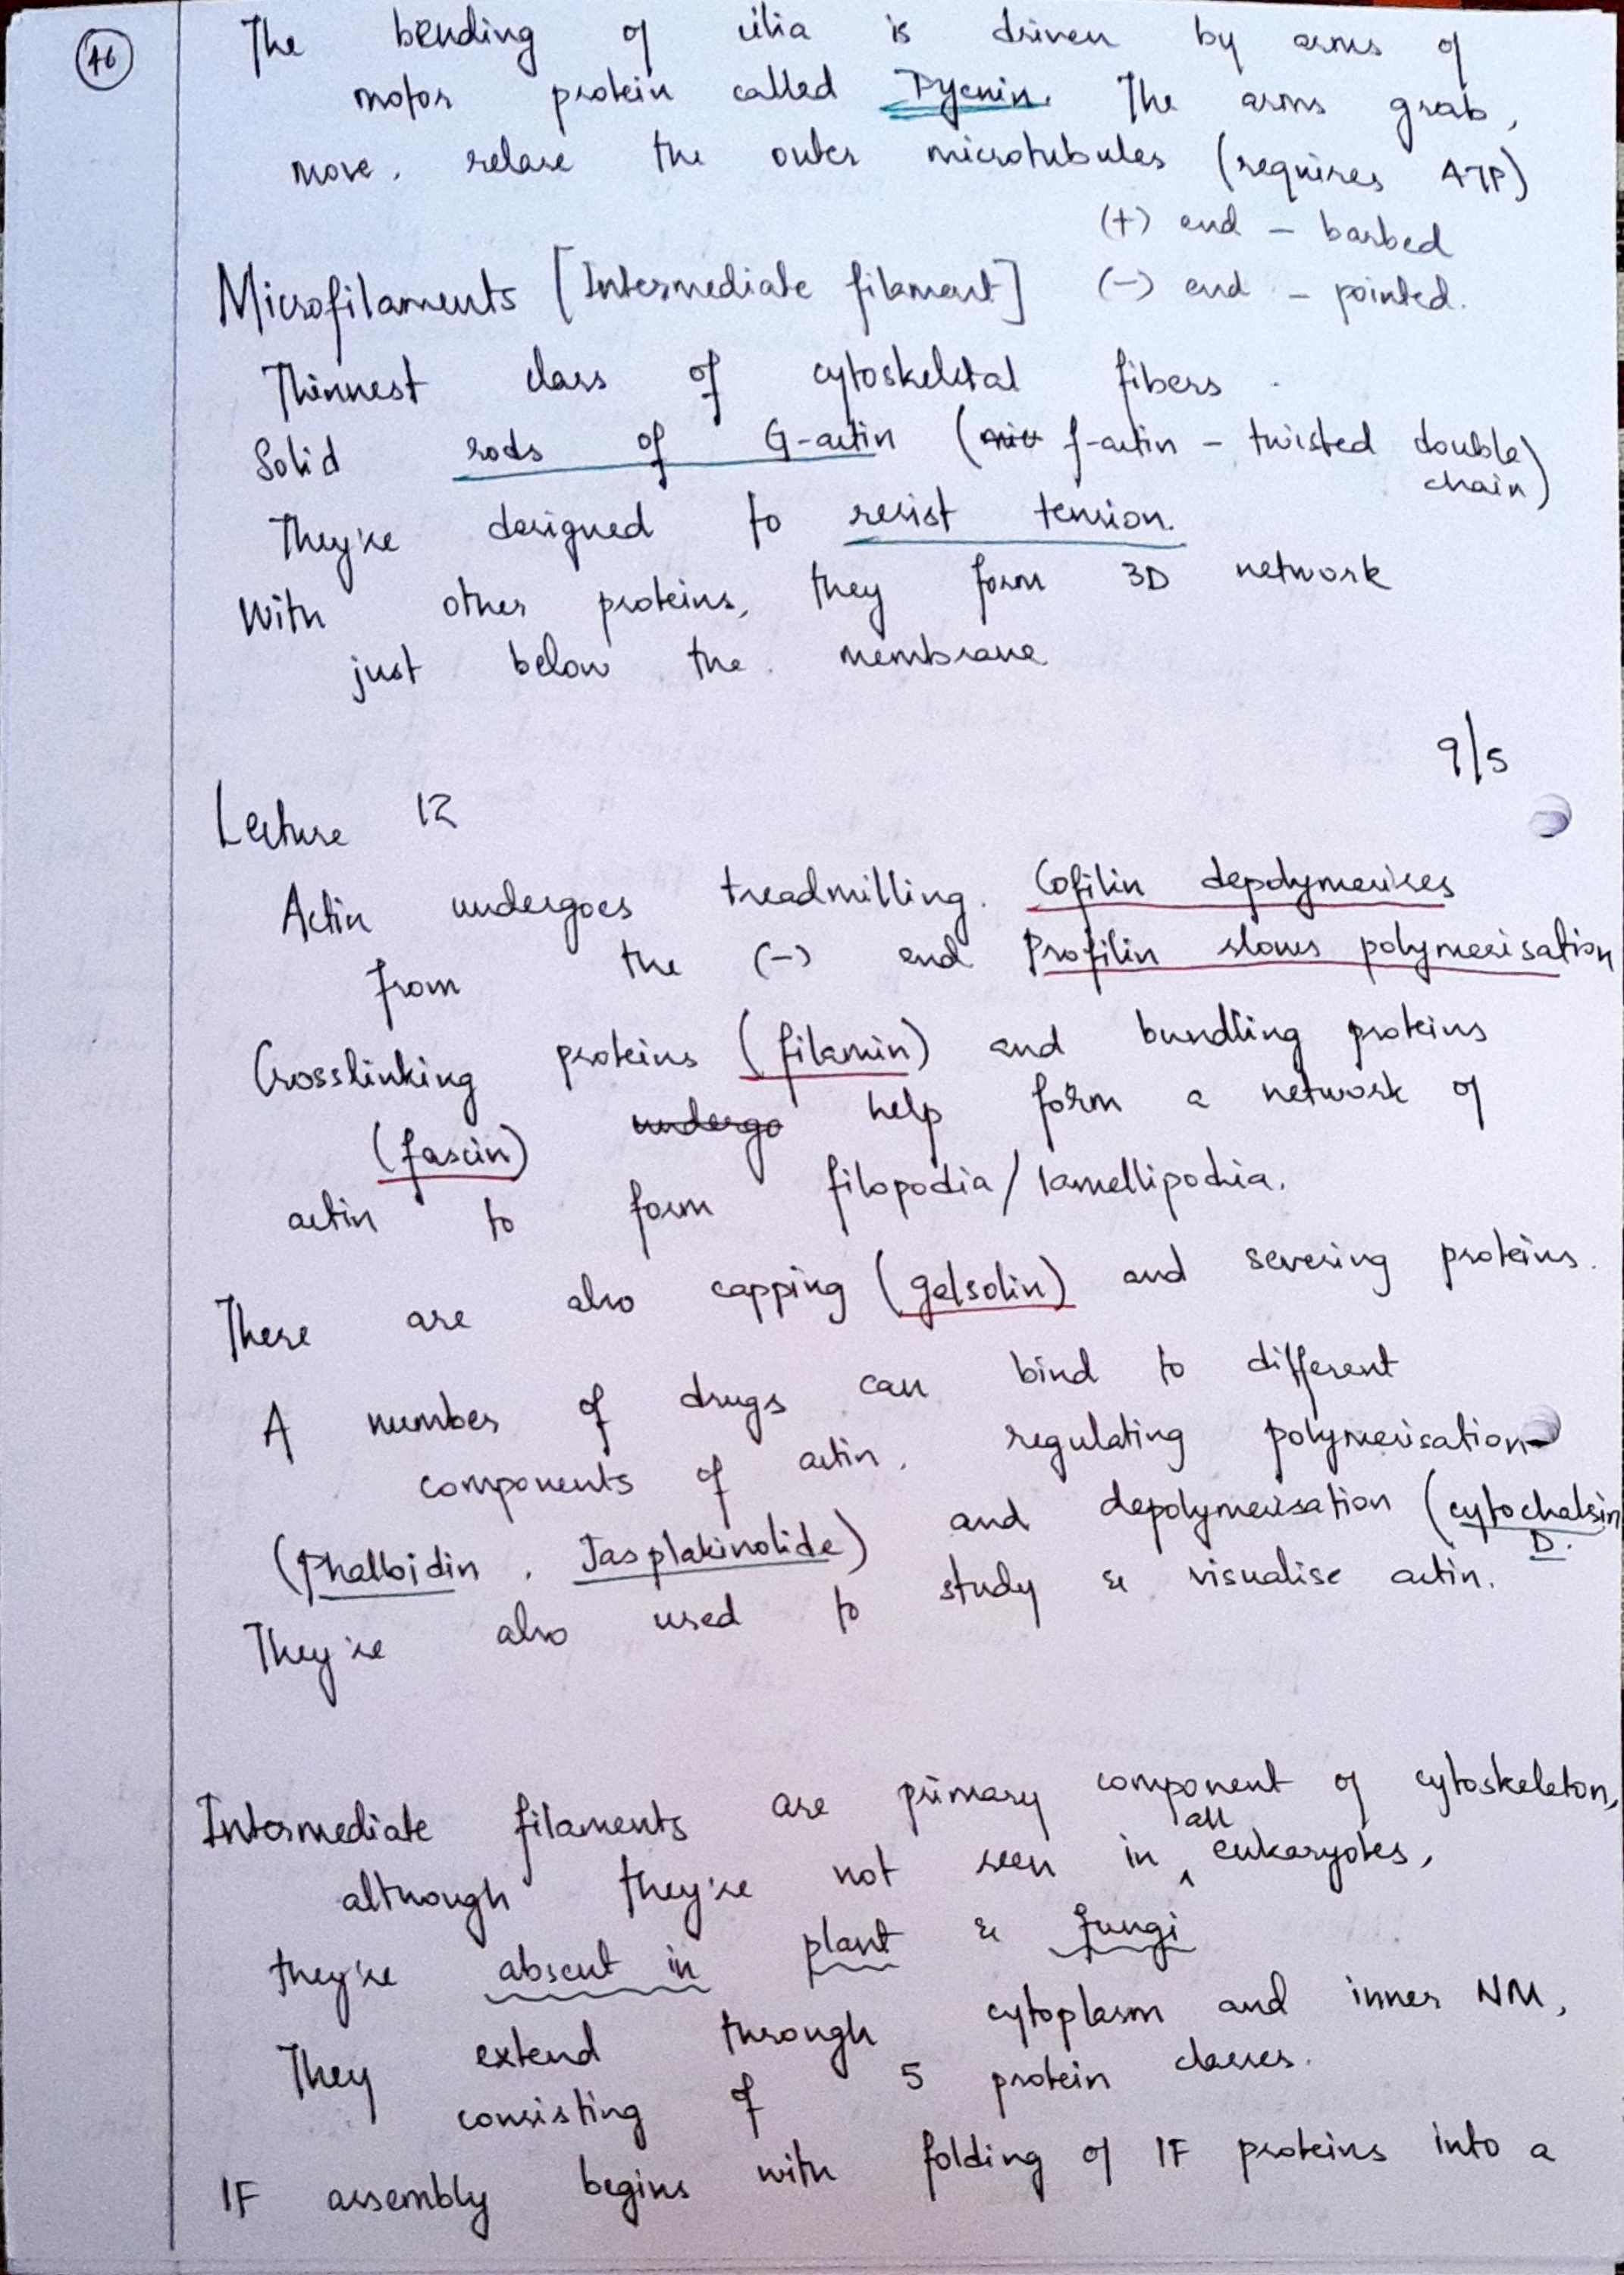 46
The bending of cilia is driven by arms of
motor protein called Dyenin. The arms grab,
move, relase the outer microtubules (requires ATP)
(+) end - barbed
Microfilaments [Intermediate filament] (-) end - pointed.
Thinnest class of cytoskeletal fibers.
Solid rods of G-actin (f-actin - twisted double
chain)
They're designed to resist tension.
With other proteins, they form 3D network
just below the membrane
9/5
Lecture 12
Actin undergoes treadmilling. Cofilin depolymerises
from the (-) end Profilin slows polymerisation
Crosslinking proteins (filamin) and bundling proteins
(fascin) undergo help form a network of
actin to form filopodia/lamellipodia.
There are also capping (gelsolin) and severing proteins.
A number of drugs can bind to different
components of actin, regulating polymerisation
(Phalloidin, Jasplakinolide) and depolymerisation (cytochalsin
D.
They're also used to study & visualise actin.
Intermediate filaments are primary component of cytoskeleton,
although they're not seen in all eukaryotes,
they're absent in plant & fungi
They extend through cytoplasm and inner NM,
consisting of 5 protein classes.
IF assembly begins with folding of IF proteins into a